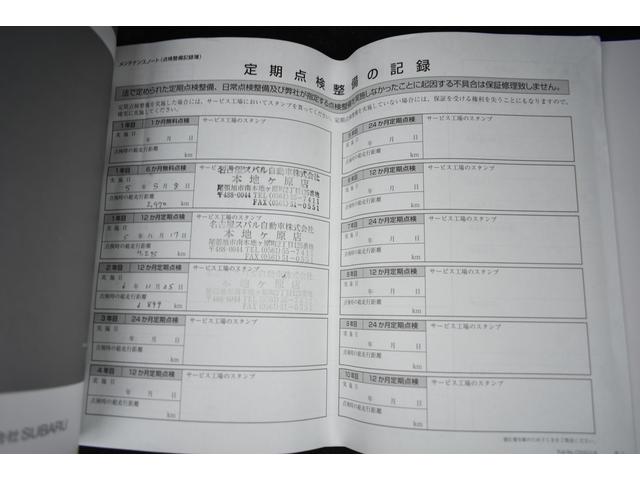 メンテナンスノート(点検整備記録簿)
定期点検整備の記録
法で定められた定期点検整備、日常点検整備及び弊社が指定する点検整備を実施しなかったことに起因する不具合は保証修理致しません。
定期点検整備を実施した場合には、サービス工場においてスタンプを貰ってください。
定期点検整備を実施していない場合には、保証を受ける権利を失うことにもなりますので、
確実に実施してください。
1年目 1か月無料点検 サービス工場のスタンプ
実施日
年 月 日
点検時の総走行距離
km
1年目 6か月無料点検
実施日
5年 5月 8日
点検時の総走行距離
2,970 km
名古屋スバル自動車株式会社
本地ヶ原店
尾張旭市南本地ヶ原町2丁目125番地
〒488-0044 TEL(0561)51-7411
FAX(0561)51-0551
1年目 12か月定期点検 サービス工場のスタンプ
実施日
5年 11月 17日
点検時の総走行距離
km
名古屋スバル自動車株式会社
本地ヶ原店
尾張旭市南本地ヶ原町2丁目125番地
〒488-0044 TEL(0561)51-7411
FAX(0561)51-0551
2年目 12か月定期点検 サービス工場のスタンプ
実施日
6年 11月
点検時の総走行距離
km
本地ヶ原店
3年目 24か月定期点検 サービス工場のスタンプ
実施日
年 月 日
点検時の総走行距離
km
4年目 12か月定期点検 サービス工場のスタンプ
実施日
年 月 日
点検時の総走行距離
km
24か月定期点検 サービス工場のスタンプ
実施日
年 月 日
点検時の総走行距離
km
12か月定期点検 サービス工場のスタンプ
実施日
年 月 日
点検時の総走行距離
km
7年目 24か月定期点検 サービス工場のスタンプ
実施日
年 月 日
点検時の総走行距離
km
8年目 12か月定期点検 サービス工場のスタンプ
実施日
年 月 日
点検時の総走行距離
km
9年目 24か月定期点検 サービス工場のスタンプ
実施日
年 月 日
点検時の総走行距離
km
10年目 12か月定期点検 サービス工場のスタンプ
実施日
年 月 日
点検時の総走行距離
km
会社 SUBARU